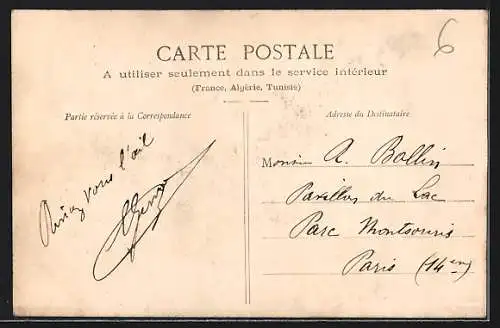 6
CARTE POSTALE
A utiliser seulement dans le service intérieur
(France, Algérie, Tunisie)
Partie réservée à la Correspondance
Adresse du Destinataire
vous l'œil
Monsieur A. Bollin
Pavillon du Lac
Parc Montsouris
Paris (14em)